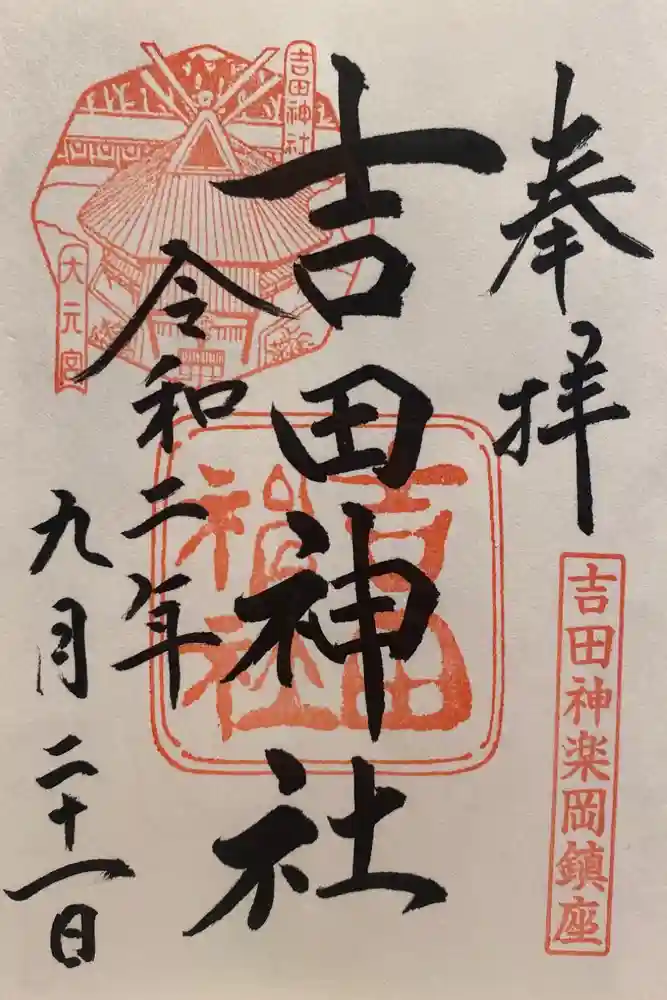 奉拝
吉田神楽岡鎮座
吉田神社
吉田神社
吉田神社
大元宮
令和二年
九月二十一日